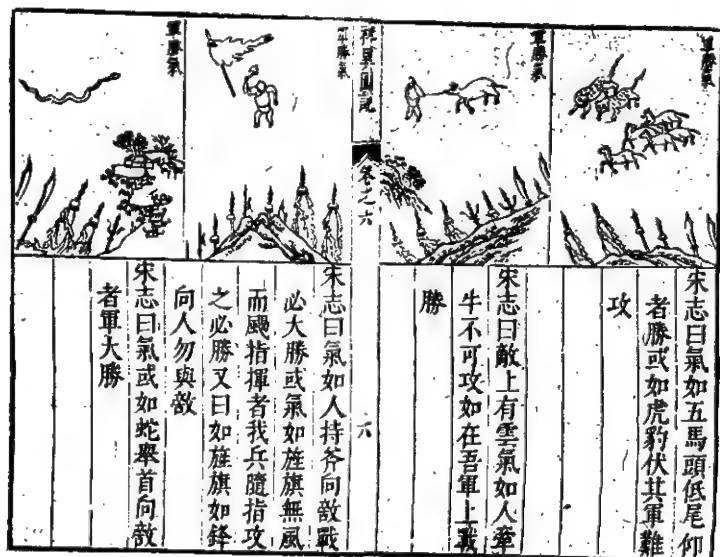 軍勝氣
宋志曰氣如五馬頭低尾仰
者勝或如虎豹伏其軍難
攻
軍勝氣
宋志曰敵上有雲氣如人牽
牛不可攻如在吾軍上戰
勝
祥異圖說
卷之六
六
軍勝氣
宋志曰氣如人持斧向敵戰
必大勝或氣如旌旗無風
而颺指揮者我兵隨指攻
之必勝又曰如旌旗如鋒
向人勿與敵
軍勝氣
宋志曰氣或如蛇舉首向敵
者軍大勝